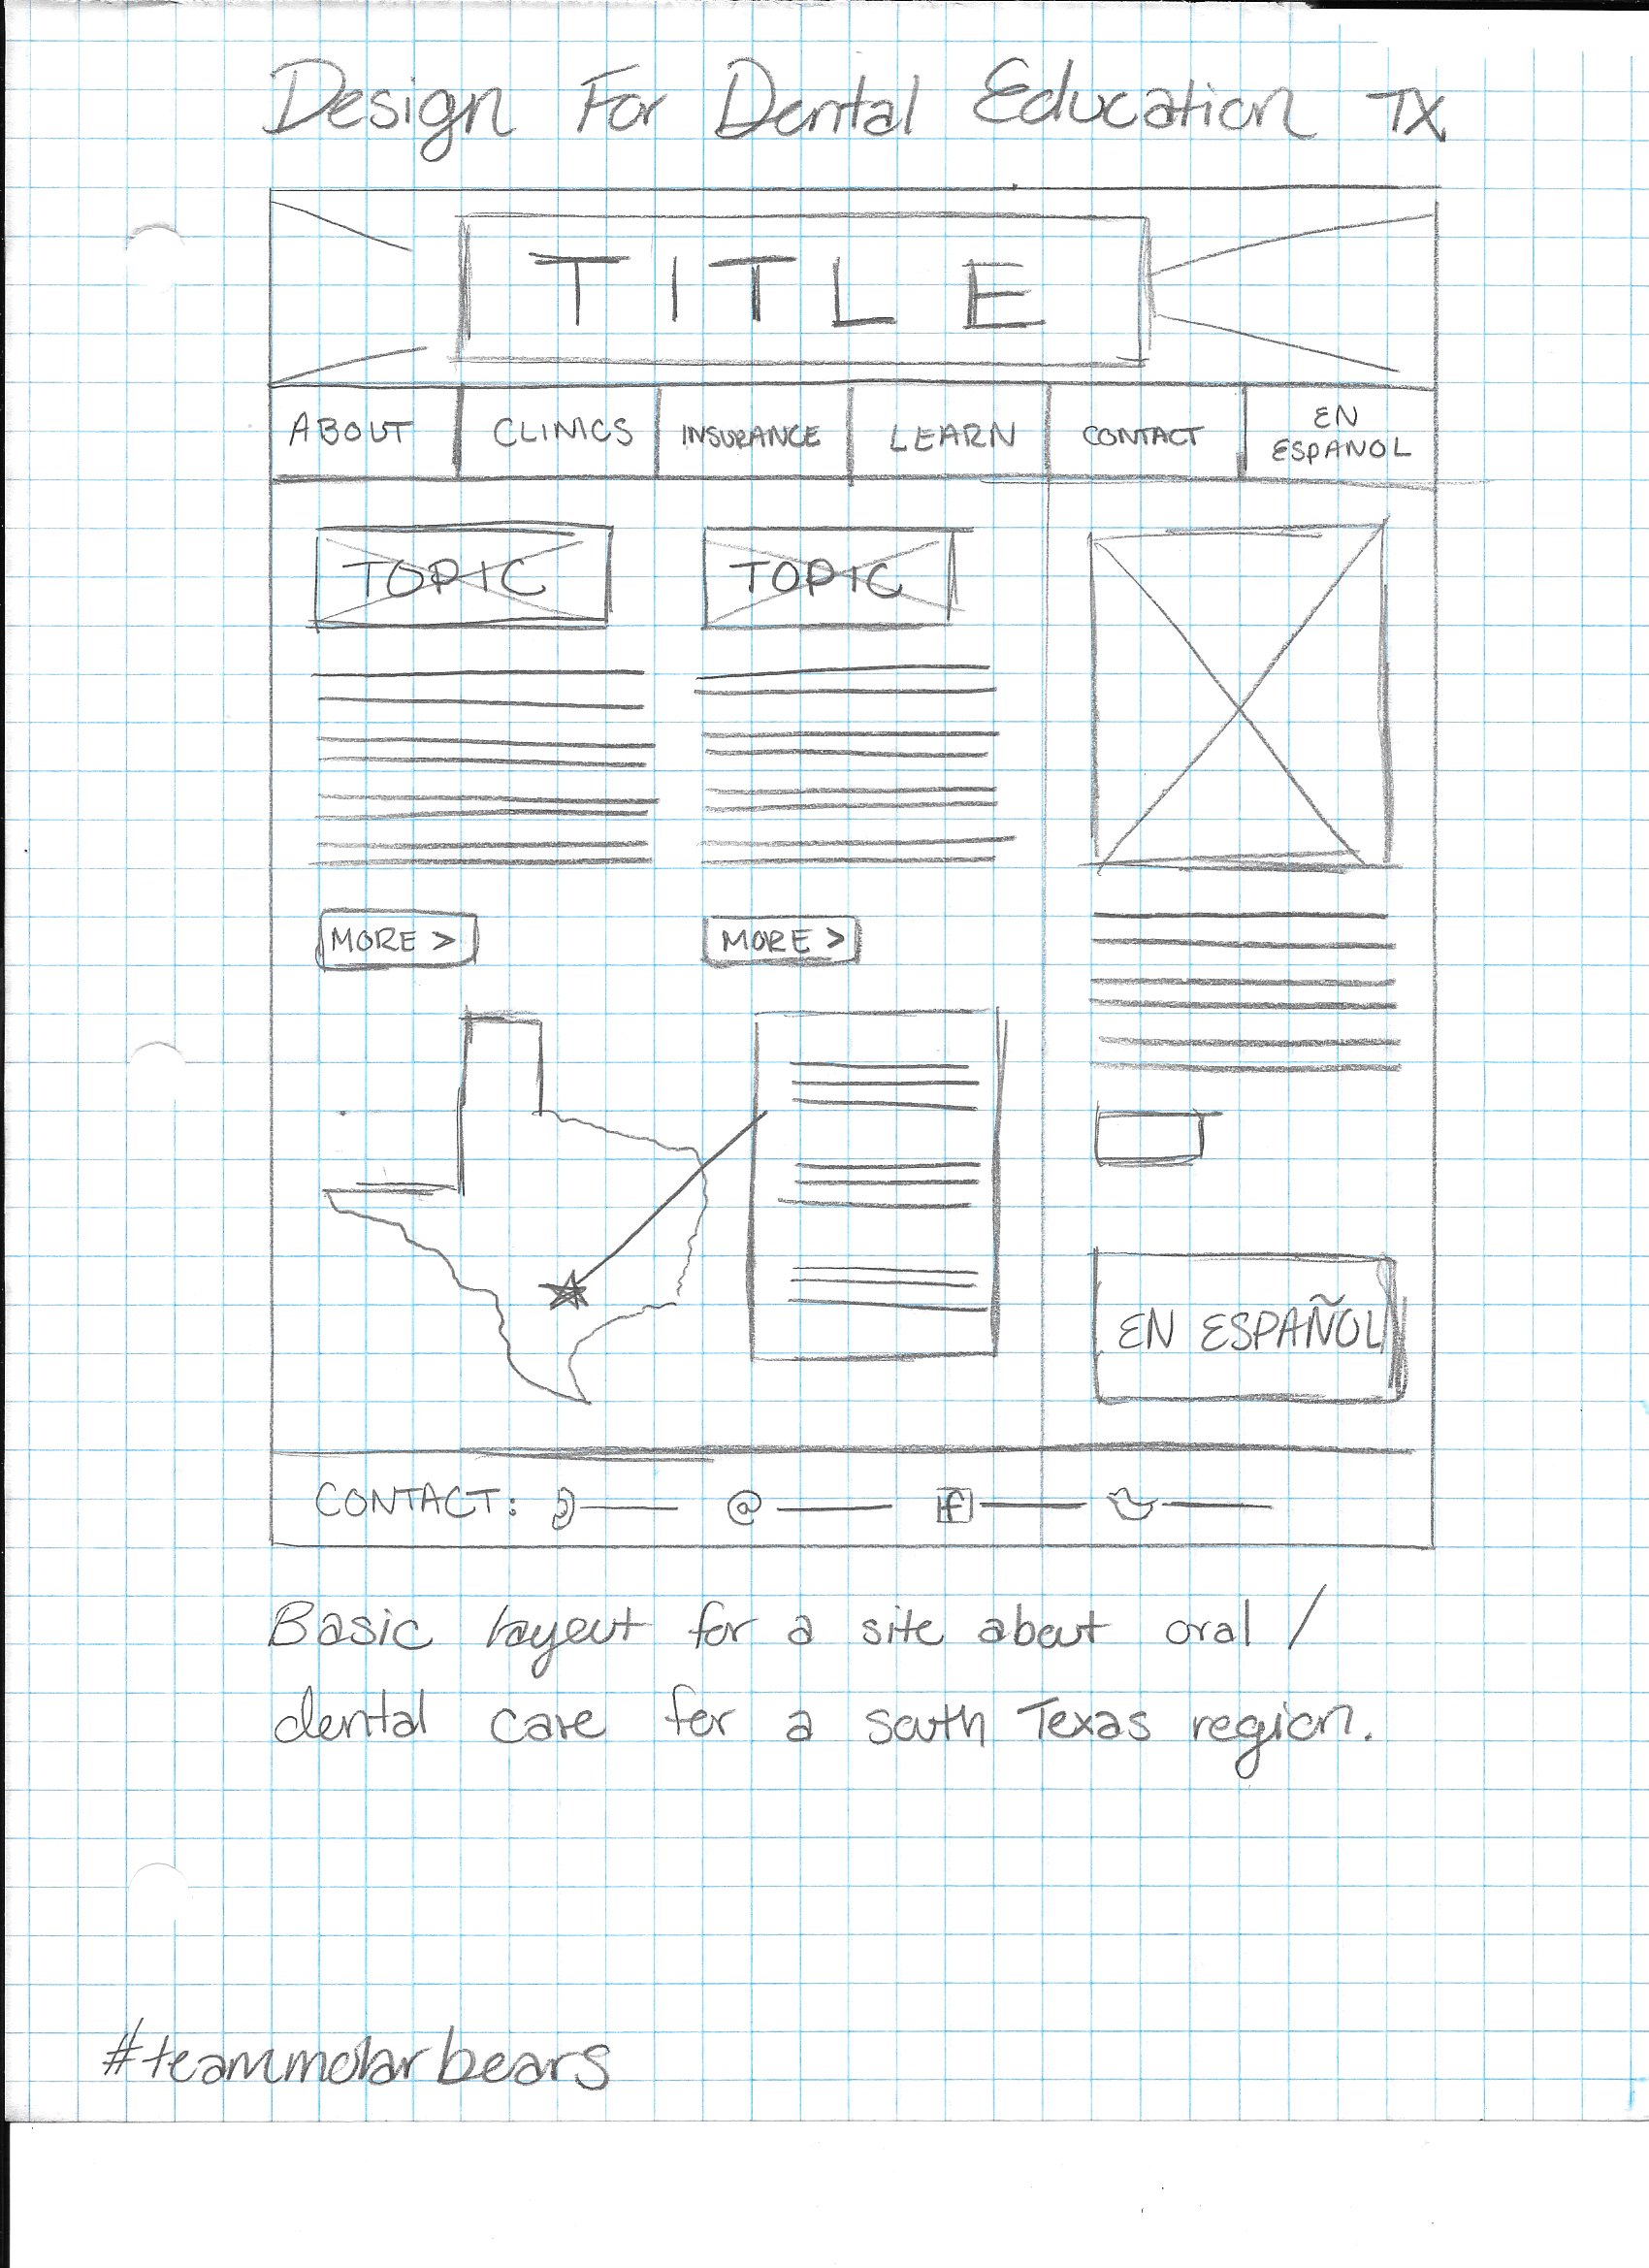 Design For Dental Education TX
TITLE
ABOUT CLINICS INSURANCE LEARN CONTACT EN ESPANOL
TOPIC TOPIC
MORE > MORE >
EN ESPAÑOL
CONTACT: @ f
Basic layout for a site about oral /
dental care for a south Texas region.
#teammolarbears